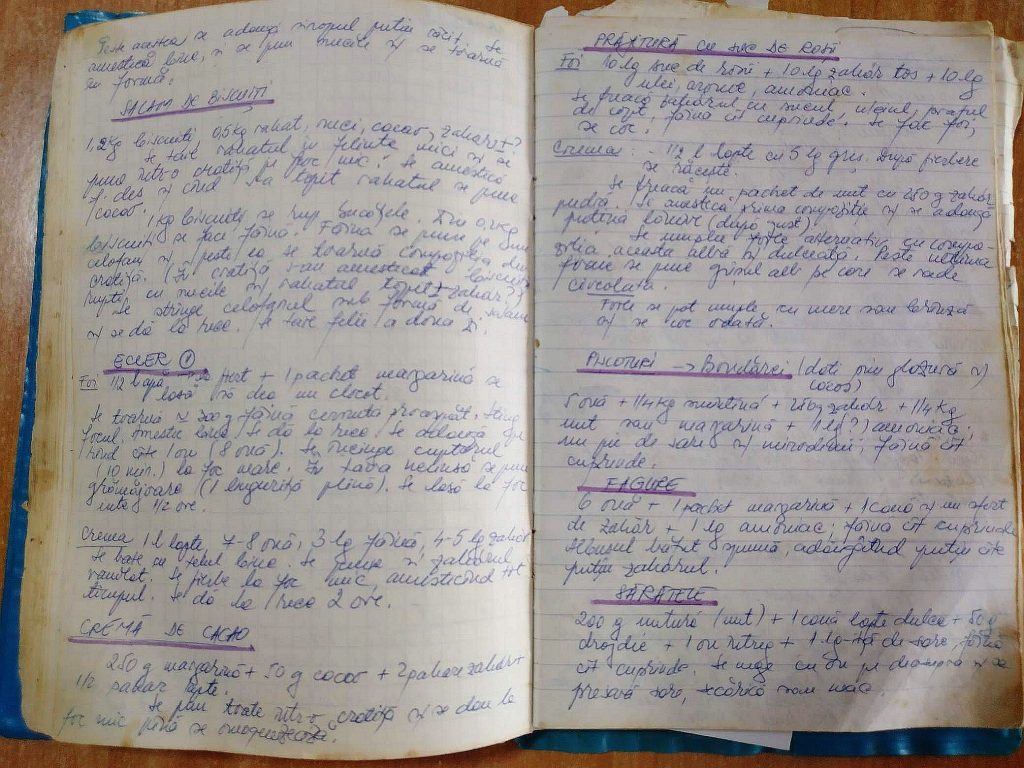 Peste acestea se adaugă siropul puțin răcit, se
amestecă bine, și se pun nucile și se toarnă
în formă.
SALAM DE BISCUIȚI
1,2 kg biscuiți 0,5 kg rahat, nuci, cacao, zahăr+?
Se taie rahatul în felințe mici și se
pune într-o cratiță pe foc mic. Se amestecă
des și când s-a topit rahatul se pune
cacao.
1 kg biscuiți se rup bucățele. Din 0,2 kg
biscuiți se face făină. Făina se pune pe un
celofan și peste ea se toarnă compoziția din
cratiță. (În cratiță s-au amestecat biscuiții
rupți cu nucile și rahatul topit + zahăr?)
Se strânge celofanul sub formă de salam
și se dă la rece. Se taie felii a doua zi.
ECLER 1
Foi 1/2 l apă fiert + 1 pachet margarină se
lasă să dea un clocot.
Se toarnă 200 g făină cernută proaspăt, sting
focul. Amestec bine. Se dă la rece. Se adaugă pe
rând câte 1 ou (8 ouă). Se încinge cuptorul
(10 min.) la foc mare. În tava neunsă se pun
grămăjoare (1 linguriță plină). Se lasă la foc
iute 1/2 ore.
Crema 1 l lapte 7-8 ouă, 3 lg făină, 4-5 lg zahăr
Se bate cu telul bine. Se pune și zahărul
vanilat. Se fierbe la foc mic, amestecând tot
timpul. Se dă la rece 2 ore.
CREMĂ DE CACAO
250 g margarină + 50 g cacao + 2 pahare zahăr +
1/2 pahar lapte.
Se pun toate într-o cratiță și se dau la
foc mic până se omogenizează.
PRĂJITURĂ CU SUC DE ROȘII
Foi 10 lg suc de roșii + 10 lg zahăr tos + 10 lg
ulei, arome, amoniac.
Se freacă zahărul cu sucul, uleiul, praful
de copt, făină cât cuprinde. Se fac foi,
se coc.
Crema: - 1/2 l lapte cu 5 lg griș. După fierbere
se răcește.
Se freacă un pachet de unt cu 250 g zahăr
pudră. Se amestecă prima compoziție și se adaugă
puțină lămâie (după gust).
Se umplu foile alternativ cu compo-
ziția aceasta albă și dulceață. Peste ultima
foaie se pune grișul alb pe care se rade
ciocolata.
Foile se pot umple cu mere sau brânză
și se coc odată.
PIȘCOTURI → Bondărei (dați prin glazură și
cocos)
5 ouă + 1/4 kg smântână + 250 g zahăr + 1/4 kg
unt sau margarină + 1 lg(?) amoniac;
un pic de sare și mirodenii; făină cât
cuprinde.
FAGURE
6 ouă + 1 pachet margarină + 1 cană și un sfert
de zahăr + 1 lg amoniac; făină cât cuprinde
Albușul bătut spumă, adăugând puțin câte
puțin zahărul.
SĂRĂȚELE
200 g untură (unt) + 1 cană lapte dulce + 50 g
drojdie + 1 ou întreg + 1 lg-ță de sare, făină
cât cuprinde. Se unge cu ou pe deasupra și se
presară sare, scorțică sau mac.